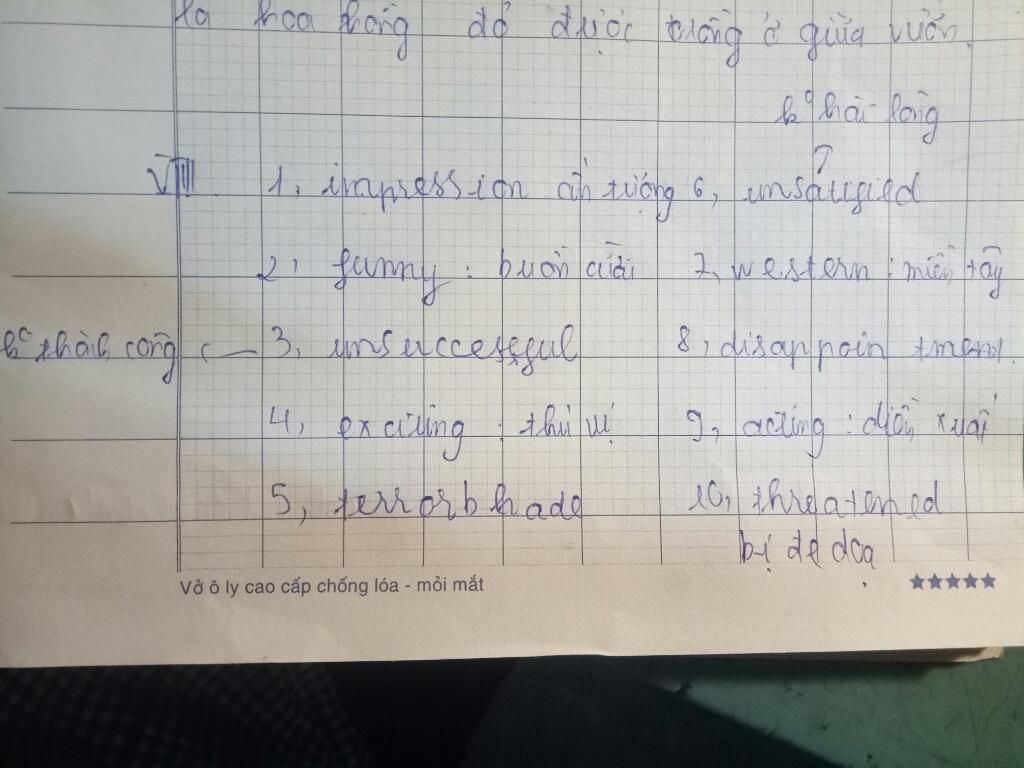 ta hoa hồng đỏ được trồng ở giữa vườn.
k° hài lòng
↑
VIII 1, impression ấn tượng 6, unsatisfied
2, funny : buồn cười 7, western : miền tây
k° thành công ← 3, unsuccessful 8, disappointment
4, exciting : thú vị 9, acting : diễn xuất
5, terror 10, threatened
bị đe dọa
Vở ô ly cao cấp chống lóa - mỏi mắt ★★★★★